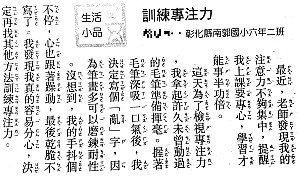 訓練專注力
彰化縣南郭國小六年二班
生活
小品
最近，老師發現我的
注意力不夠集中，提醒
我上課要專心，學習才
能事半功倍。
為了檢視專注
力，我拿起許久未曾動過
的毛筆想揮毫。握著
毛筆深吸一口氣後，我
決定寫個「亂」字，因
為筆畫多可以磨鍊耐性
。沒想到，我的手抖個
不停，心也跟著躁動，最後乾脆不
寫了。我發現我真的容易分心，決
定再找其他方法訓練專注力。